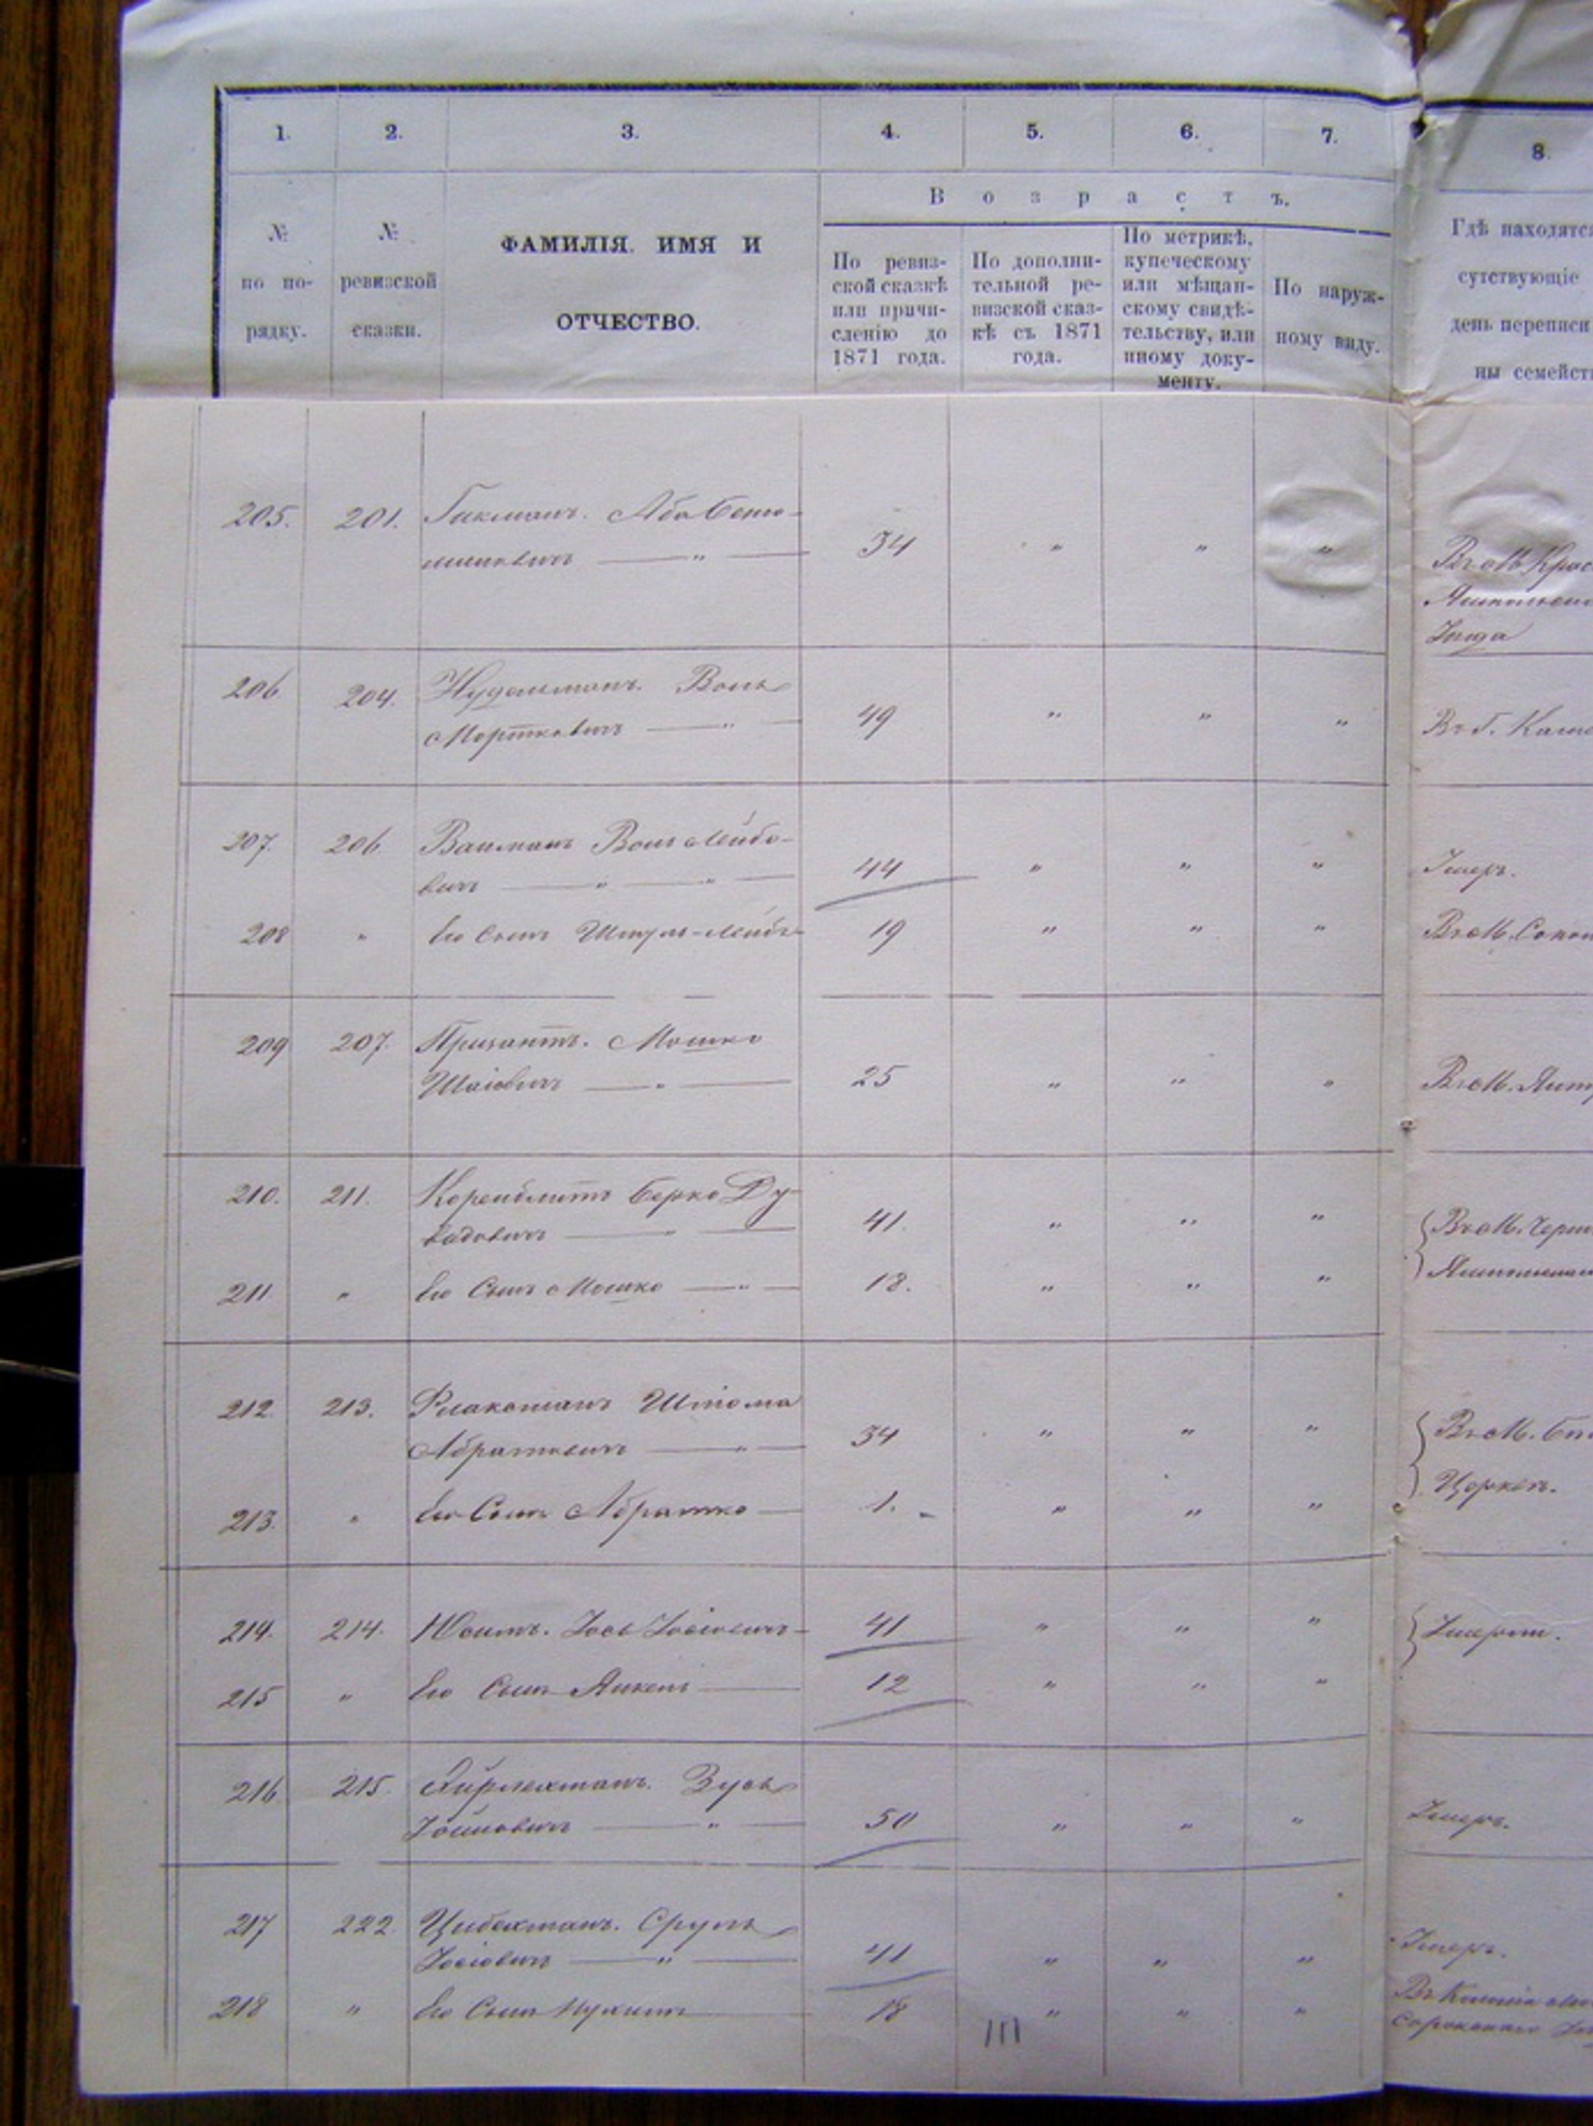 1. 2. 3. 4. 5. 6. 7. 8.
Возрастъ.
№ по по-
рядку.
№
ревизской
сказки.
ФАМИЛІЯ. ИМЯ И
ОТЧЕСТВО.
По ревиз-
ской сказкѣ
или причи-
сленію до
1871 года.
По дополни-
тельной ре-
визской сказ-
кѣ съ 1871
года.
По метрикѣ,
купеческому
или мѣщан-
скому свидѣ-
тельству, или
иному доку-
менту.
По наруж-
ному виду.
Гдѣ находятся
сутствующіе
день переписи
ны семейств
205. 201. Гикманъ. Аба Беню-
миновичъ — " — 34 " " " Въ М. Крас
Ямпольск
Уѣзда
206 204. Нудельманъ.Воль
Мортковичъ — " — 49 " " " Въ г. Каме
207. 206. Вайманъ Волъ Лейбо-
вичъ — " — " — 44 " " " Умеръ.
208 " Его Сынъ Шмуль-Лейбъ 19 " " " Въ М. Соко
209 207. Призантъ. Мошко
Шаіовичъ — " — 25 " " " Въ М. Ямп
210. 211. Коренблитъ Берко Ду-
вадовичъ — " — 41. " " " Въ М. Черн
211 " Его Сынъ Мошко — " — 18. " " " Ямпольск
212. 213. Шлома
Абрамовичъ — " — 34 " " " Въ М. Бѣл
213. " Его Сынъ Абрамко — 1. " " " Церквѣ.
214. 214. Іось Іосіовичъ 41 " " " Умерли.
215 " Его Сынъ Янкель — 12 " " "
216 215. Зусь
Іойновичъ — " — 50 " " " Умеръ.
217 222. Цибехманъ. Сруль
Іосіовичъ — " — 41 " " " Умеръ.
218 " Его Сынъ Нухимъ 18 " " " Въ Колоніи
Сорокскаго